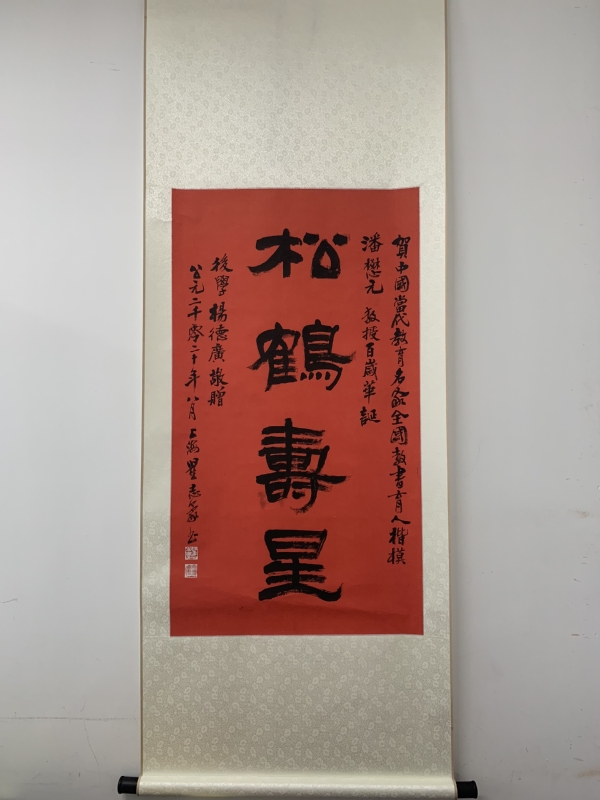 賀中國當代教育名家全國教書育人楷模
潘懋元 教授百歲華誕
松鶴壽星
後學楊德廣敬贈
公元二千零二十年八月上海瞿志豪書